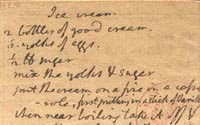 Ice cream.
2 bottles of good cream.
6. yolks of eggs.
½ ℔ sugar
mix the yolks & sugar
put the cream on a fire in a casse
-role, first putting in a stick of Vanilla.
when near boiling take it off &